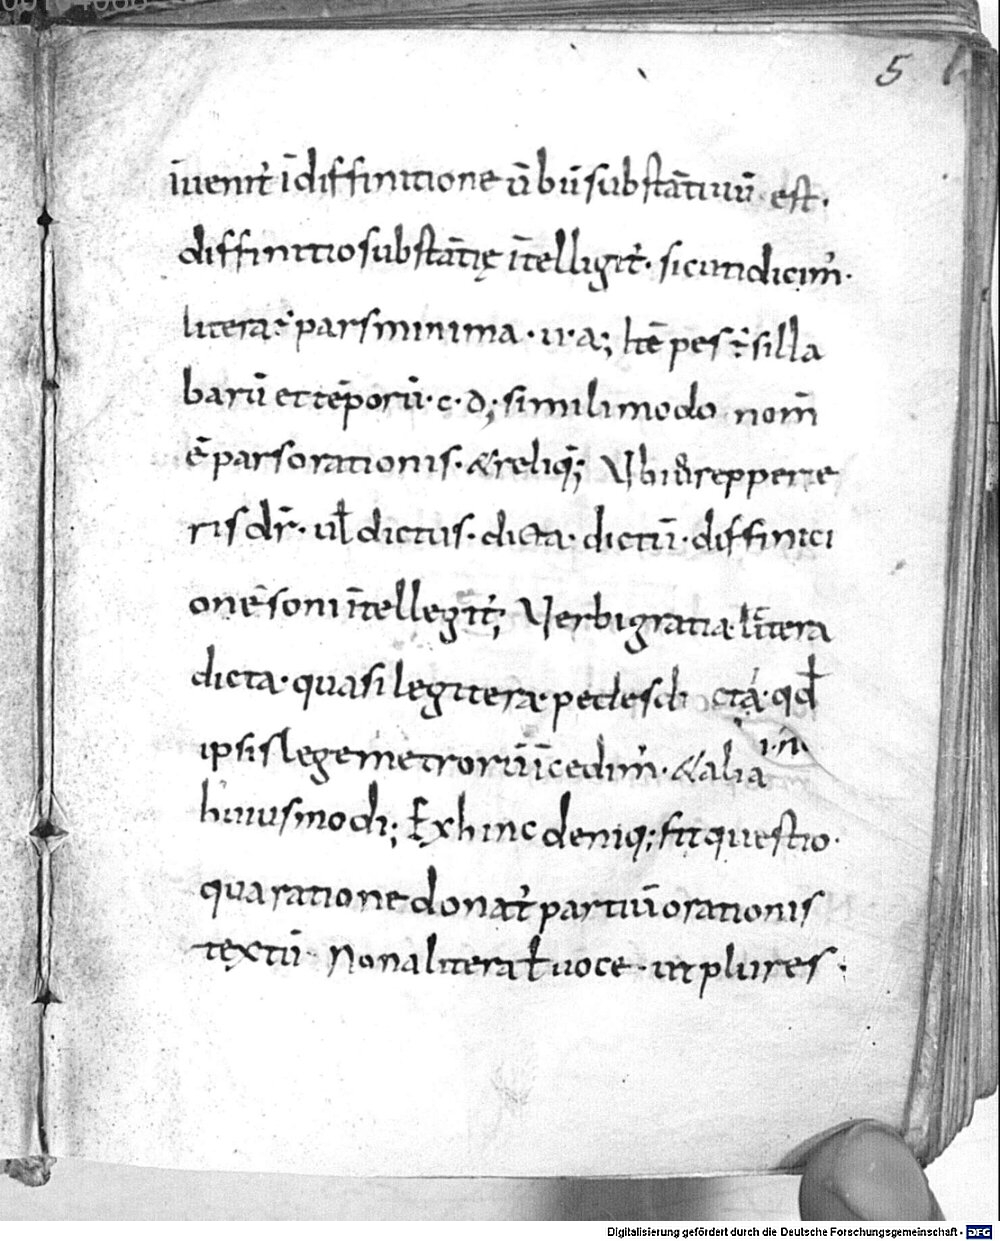 5
īuenit᷑ īdiffinitione ūbū substātiuū est.
diffinitio substātię ītelligit᷑. sicum dicim᷑.
litera ÷ pars minima. u. a; Itē pes ÷ silla
barū et tēporū. c. d; simili modo nom̄
ē pars orationis. & reliq̄; Ubi ū reppere
ris dr̄. ul̄ dictus. dicta. dictū. diffinici
onē soni ītellegit᷑; Uerbi gratia. litera
dicta. quasi legitera. pedes dicta. qd̄
ipsis lege metrorū īcedim᷑. & alia i.n.
huiusmodi; Ex hinc deniq; fit questio.
qua ratione donat᷑ partiū orationis
textū. Non a litera ł uoce. ut plures.
Digitalisierung gefördert durch die Deutsche Forschungsgemeinschaft - DFG